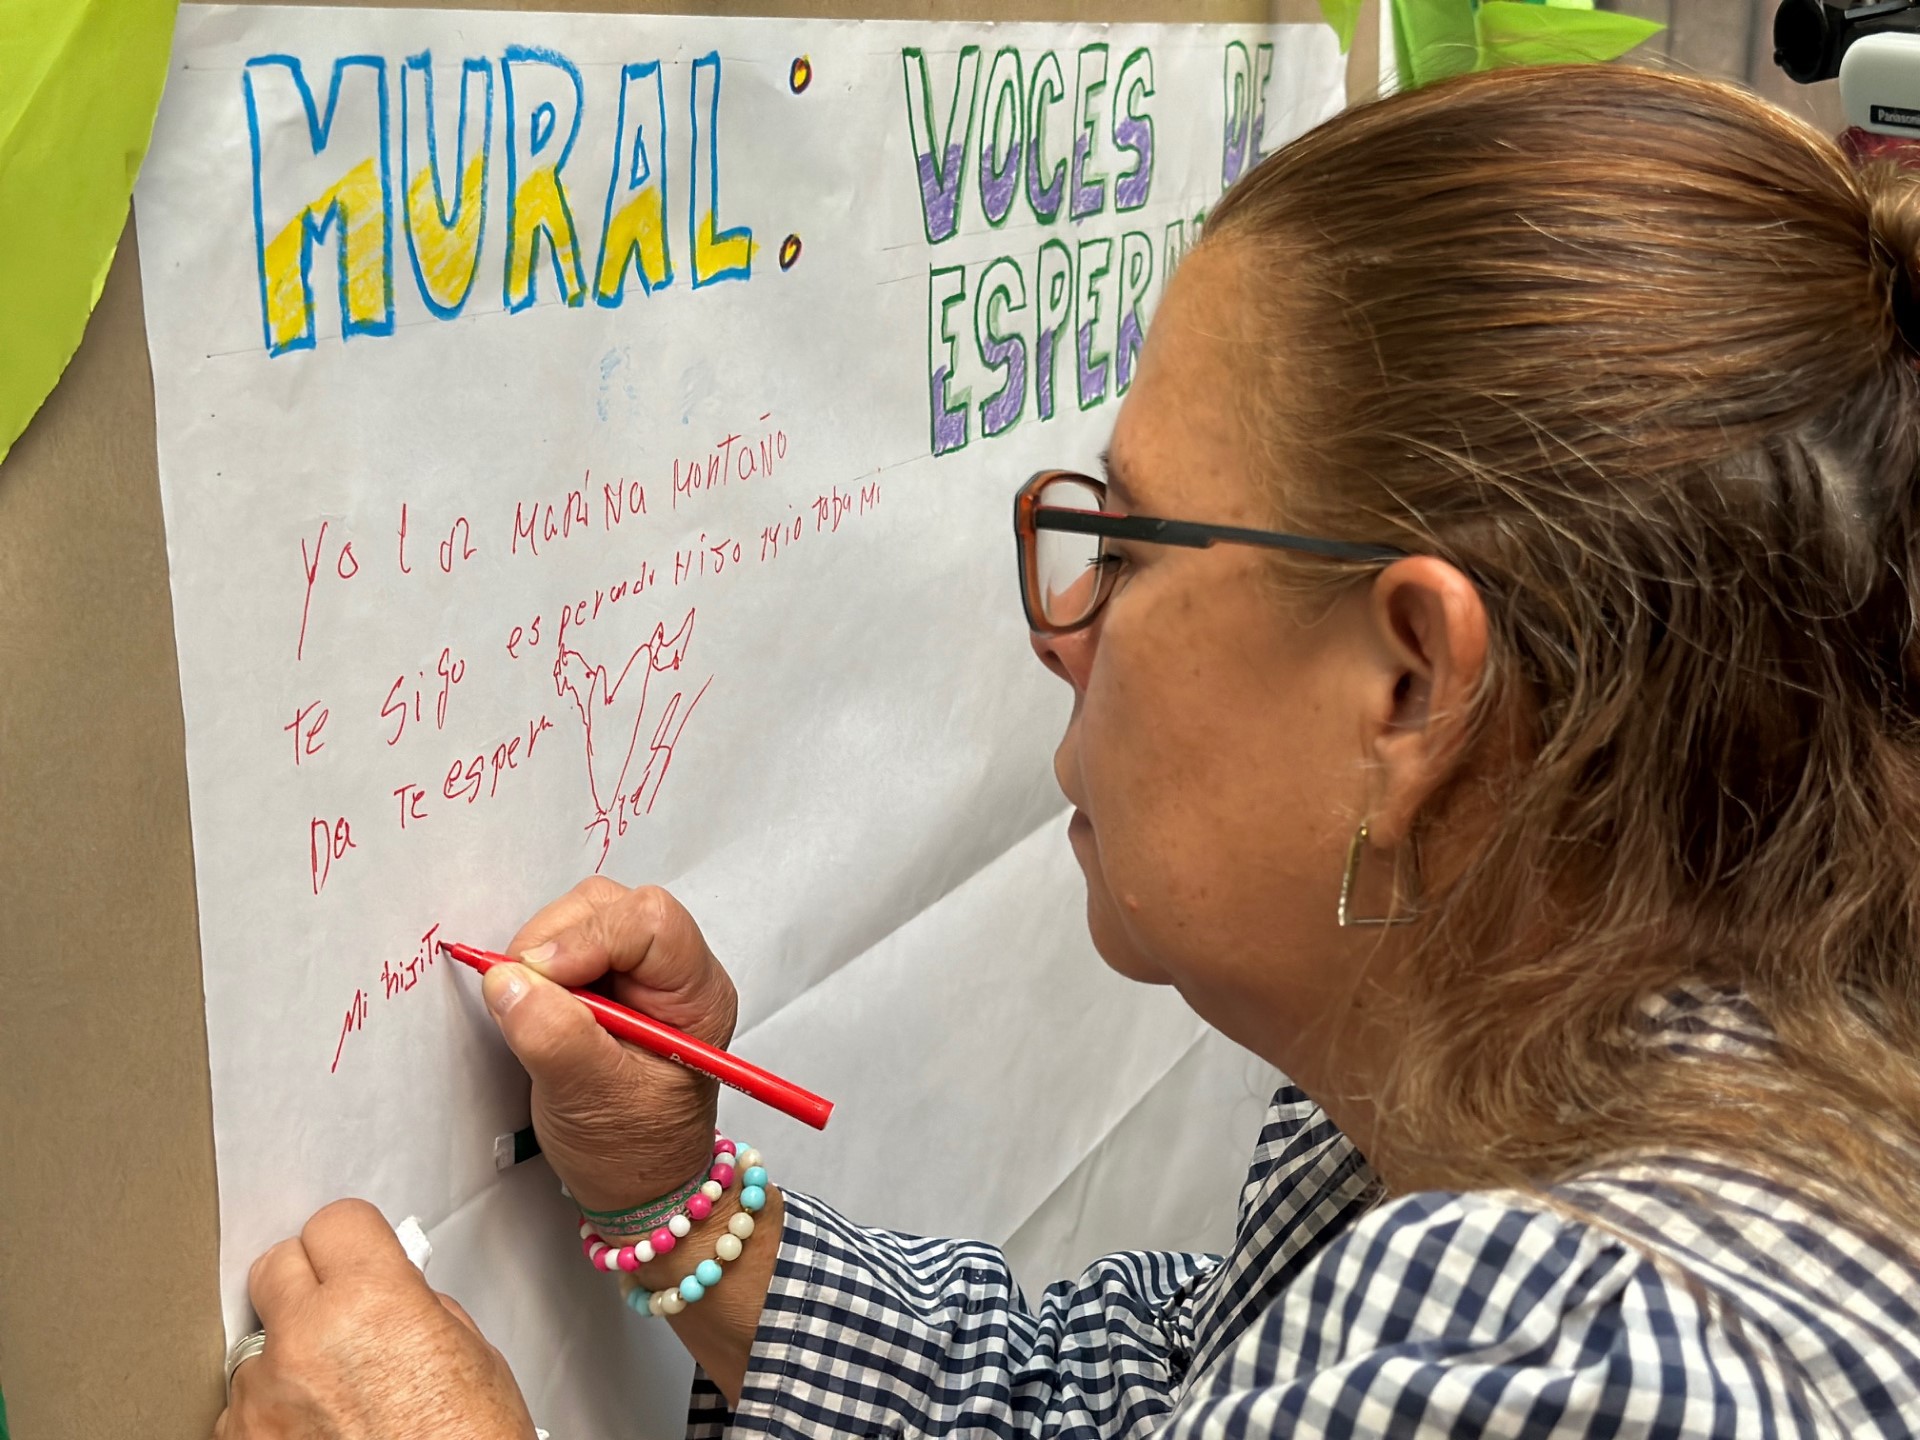 MURAL:
VOCES DE
ESPERA
Yo lUZ MaRiNa MONTaÑO
Te sigo esperando HiJo Mio ToDa Mi
Da Te espera
Mi hiJiTa
Panasonic